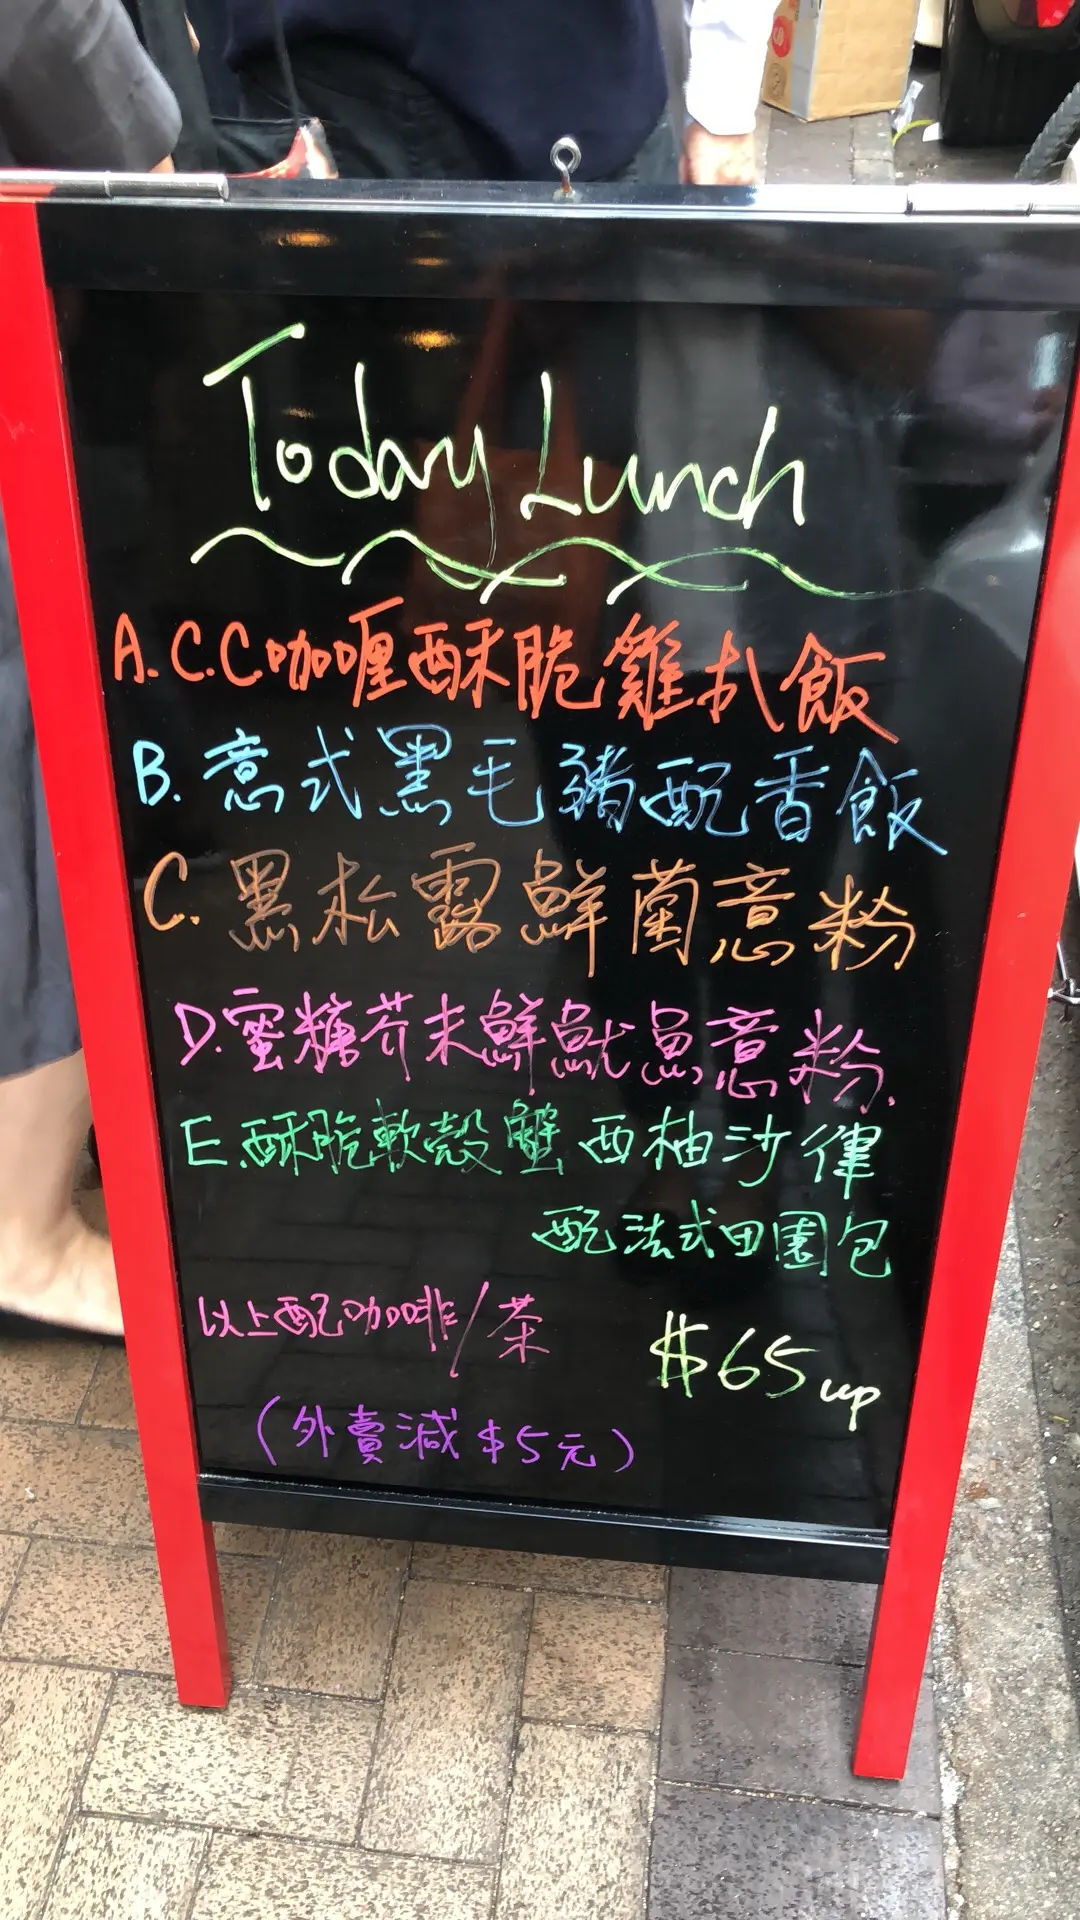 Today Lunch
A. C.C咖喱酥脆雞扒飯
B. 意式黑毛豬配香飯
C. 黑松露鮮菌意粉
D. 蜜糖芥末鮮魷魚意粉
E. 酥脆軟殼蟹西柚沙律
配法式田園包
以上配咖啡/茶
$65 up
(外賣減$5元)